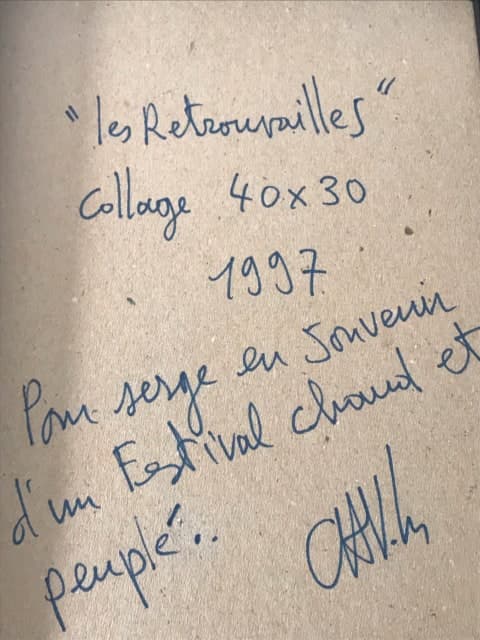 "les Retrouvailles"
Collage 40x30
1997
Pour serge en souvenir
d'un Festival chaud et
peuplé..